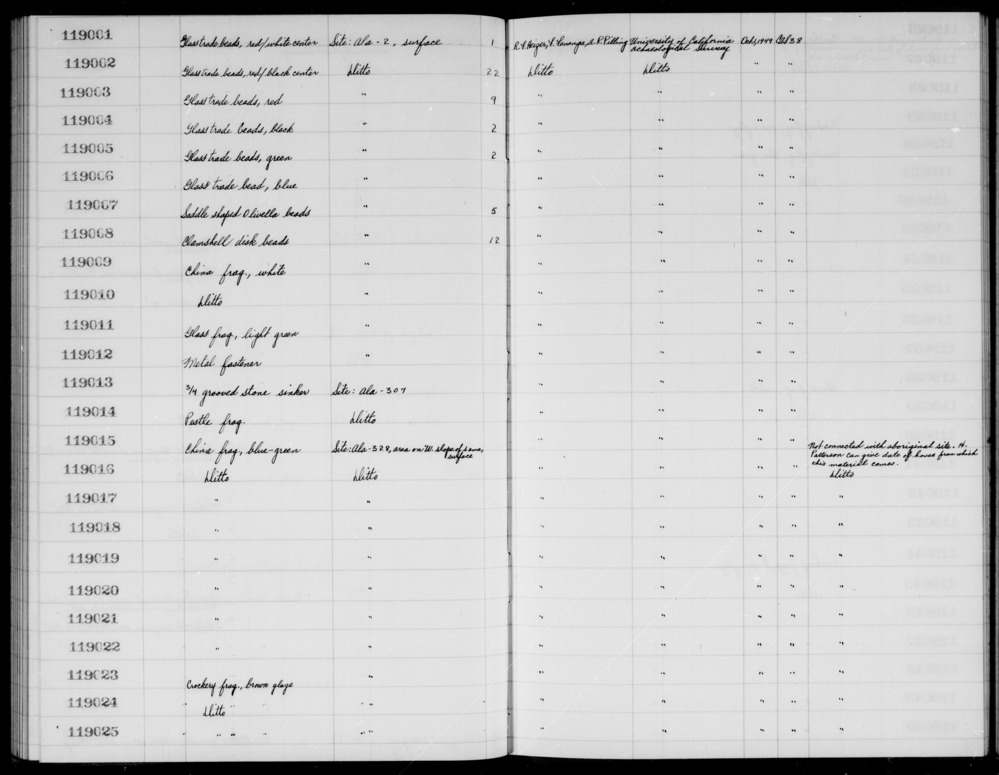 119001 Glass trade beads, red/white center Site: Ala-2, surface 1 R.F. Heizer, & A.R. Pilling University of California archaeological Survey Oct, 1949
119002 Glass trade beads, red/black center Ditto 22 Ditto Ditto " "
119003 Glass trade beads, red " 9 " " " "
119004 Glass trade beads, black " 2 " " " "
119005 Glass trade beads, green " 2 " " " "
119006 Glass trade bead, blue " " " " "
119007 Saddle shaped Olivella beads " 5 " " " "
119008 Clamshell disk beads " 12 " " " "
119009 China frag., white " " " " "
119010 Ditto " " " " "
119011 Glass frag., light green " " " " "
119012 Metal fastener " " " " "
119013 3/4 grooved stone sinker Site: Ala-307 " " " "
119014 Pestle frag. Ditto " " " "
119015 China frag., blue-green Site: Ala-328, area on W. slope of same, surface " " " " Not connected with aboriginal site. H. Patterson can give date of house from which this material comes.
119016 Ditto Ditto " " " " Ditto
119017 " " " " " " "
119018 " " " " " " "
119019 " " " " " " "
119020 " " " " " " "
119021 " " " " " " "
119022 " " " " " " "
119023 Crockery frag., brown glaze " " " " " "
119024 " Ditto " " " " " " " "
119025 " " " " " " " " " "